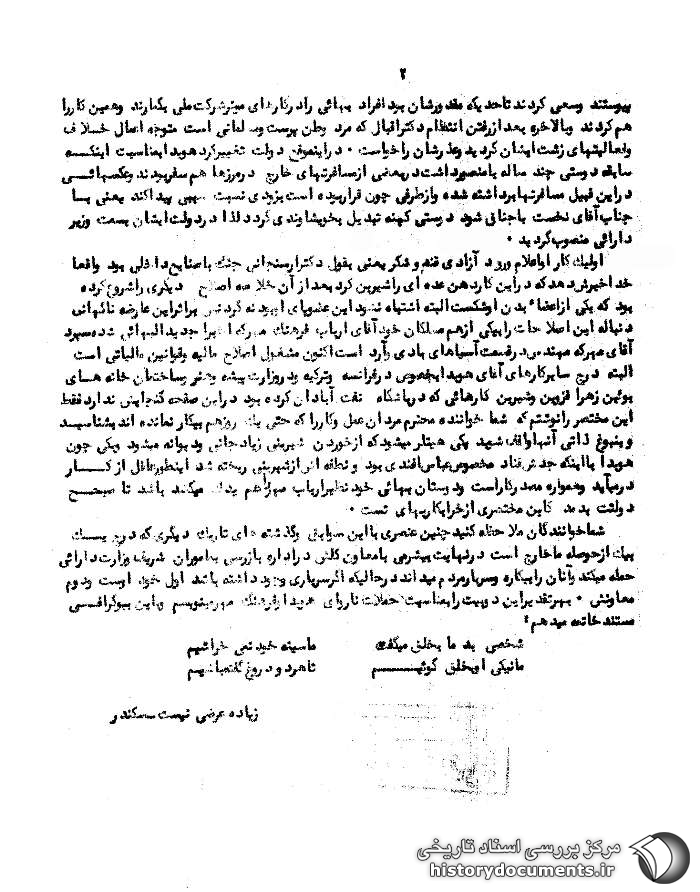 ۲
پیوستند وسعی کردند تاحدیکه مقدورشان بود افراد بهائی رادرکارهای شرکت ملی بگمارند وهمین کاررا
هم کردند وبالاخره بعد ازرفتن انتظام دکتراقبال که مرد وطن پرست ومسلمانی است متوجه اعمال خلاف
وفعالیتهای زشت ایشان گردید وعذرشان راخواست ۰ دراینموقع دولت تغییرکرد هویدا بمناسبت اینکه
سابقه دوستی چند ساله بامنصورداشت دربعضی ازمسافرتهای خارج هم سفربودند وعکسهائی
دراین قبیل مسافرتهابرداشته شده وازطرفی چون قراربوده است بزودی نسبت سببی پیداکند یعنی با
جناب آقای نخست باجناق شود دوستی کهنه تبدیل بخویشاوندی گردد لذا دردولت ایشان بسمت وزیر
دارائی منصوب گردید ۰
اولین کار اواعلام ورود آزادی قند و شکر یعنی بقول دکترارسنجانی جنگ باصنایع داخلی بود واقعا
خدا خیرش دهد که دراین کار دهن عده ای راشیرین کرد بعد از آن اصلاح دیگری راشروع کرده
بود که یکی ازاعضاء بدن اوشکست البته اشتباه نشود این عضوپای اوبود نه گردنش براثراین عارضه ناگهانی
دنباله این اصلاحات رابیکی ازهم مسلکان خود آقای ارباب فرهنگ مهرکه اخیرا جدید البهائی شده سپرد
آقای مهرکه مهندسی درقسمت آسیاهای بادی وآرد است اکنون مشغول اصلاح مالیه وقوانین مالیاتی است
البته درج سایرکارهای آقای هویدا بخصوص درفرانسه وترکیه ودروزارت پیشه وهنر وساختمان خانه های
بوئین زهرا قزوین وشیرین کارهائی که درپالاشگاه نفت آبادان کرده بود دراین صفحه گنجایش ندارد فقط
این مختصر رانوشتم که شما خواننده محترم مردان عمل وکاررا که حتی یک روزهم بیکار نمانده اند بشناسید
وبنبوغ ذاتی آنهاواقف شوید یکی هیتلر میشود که ازخوردن شیرینی زیاد جانی ودیوانه میشود ویکی چون
هویدا بااینکه جدش قناد مخصوص عباس افندی بود و نطفه اش ازشیرینی ریخته شد اینطورعاقل از کار
درمیآید وهمواره مصدرکاراست ودوستان بهائی خود نظیرارباب مهرراهم یدک میکند باشد تا صبح
دولتت بدمد کاین مختصری ازخرابکاریهای تست ۰
شماخوانندگان ملاحظه کنید چنین عنصری بااین سوابق وگذشته های تاریک دیگری که درج یک یک
بیک ازحوصله ما خارج است درنهایت بیشرمی بامعاون کلش دراداره بازرسی بماموران شریف وزارت دارائی
حمله میکند وآنان رابیکاره وسربارمردم میداند درحالیکه اگرسرباری وجود داشته باشد اول خود اوست ودوم
معاونش ۰ بهرتقدیر این دوبیت رابمناسبت حملات ناروای هویدا وفرهنگ مهرمینویسم وباین بیوگرافی
مستند خاتمه میدهم :
شخصی بد ما بخلق میگفت ماسینه خود نمی خراشیم
مانیکی اوبخلق گوئیم تاهردو دروغ گفته باشیم
زیاده عرضی نیست سمندر
مرکز بررسی اسناد تاریخی
historydocuments.ir